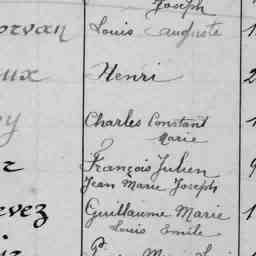 Joseph
Louis Auguste
Henri
Charles Constant
Marie
François Julien
Jean Marie Joseph
evez Guillaume Marie
Louis Emile